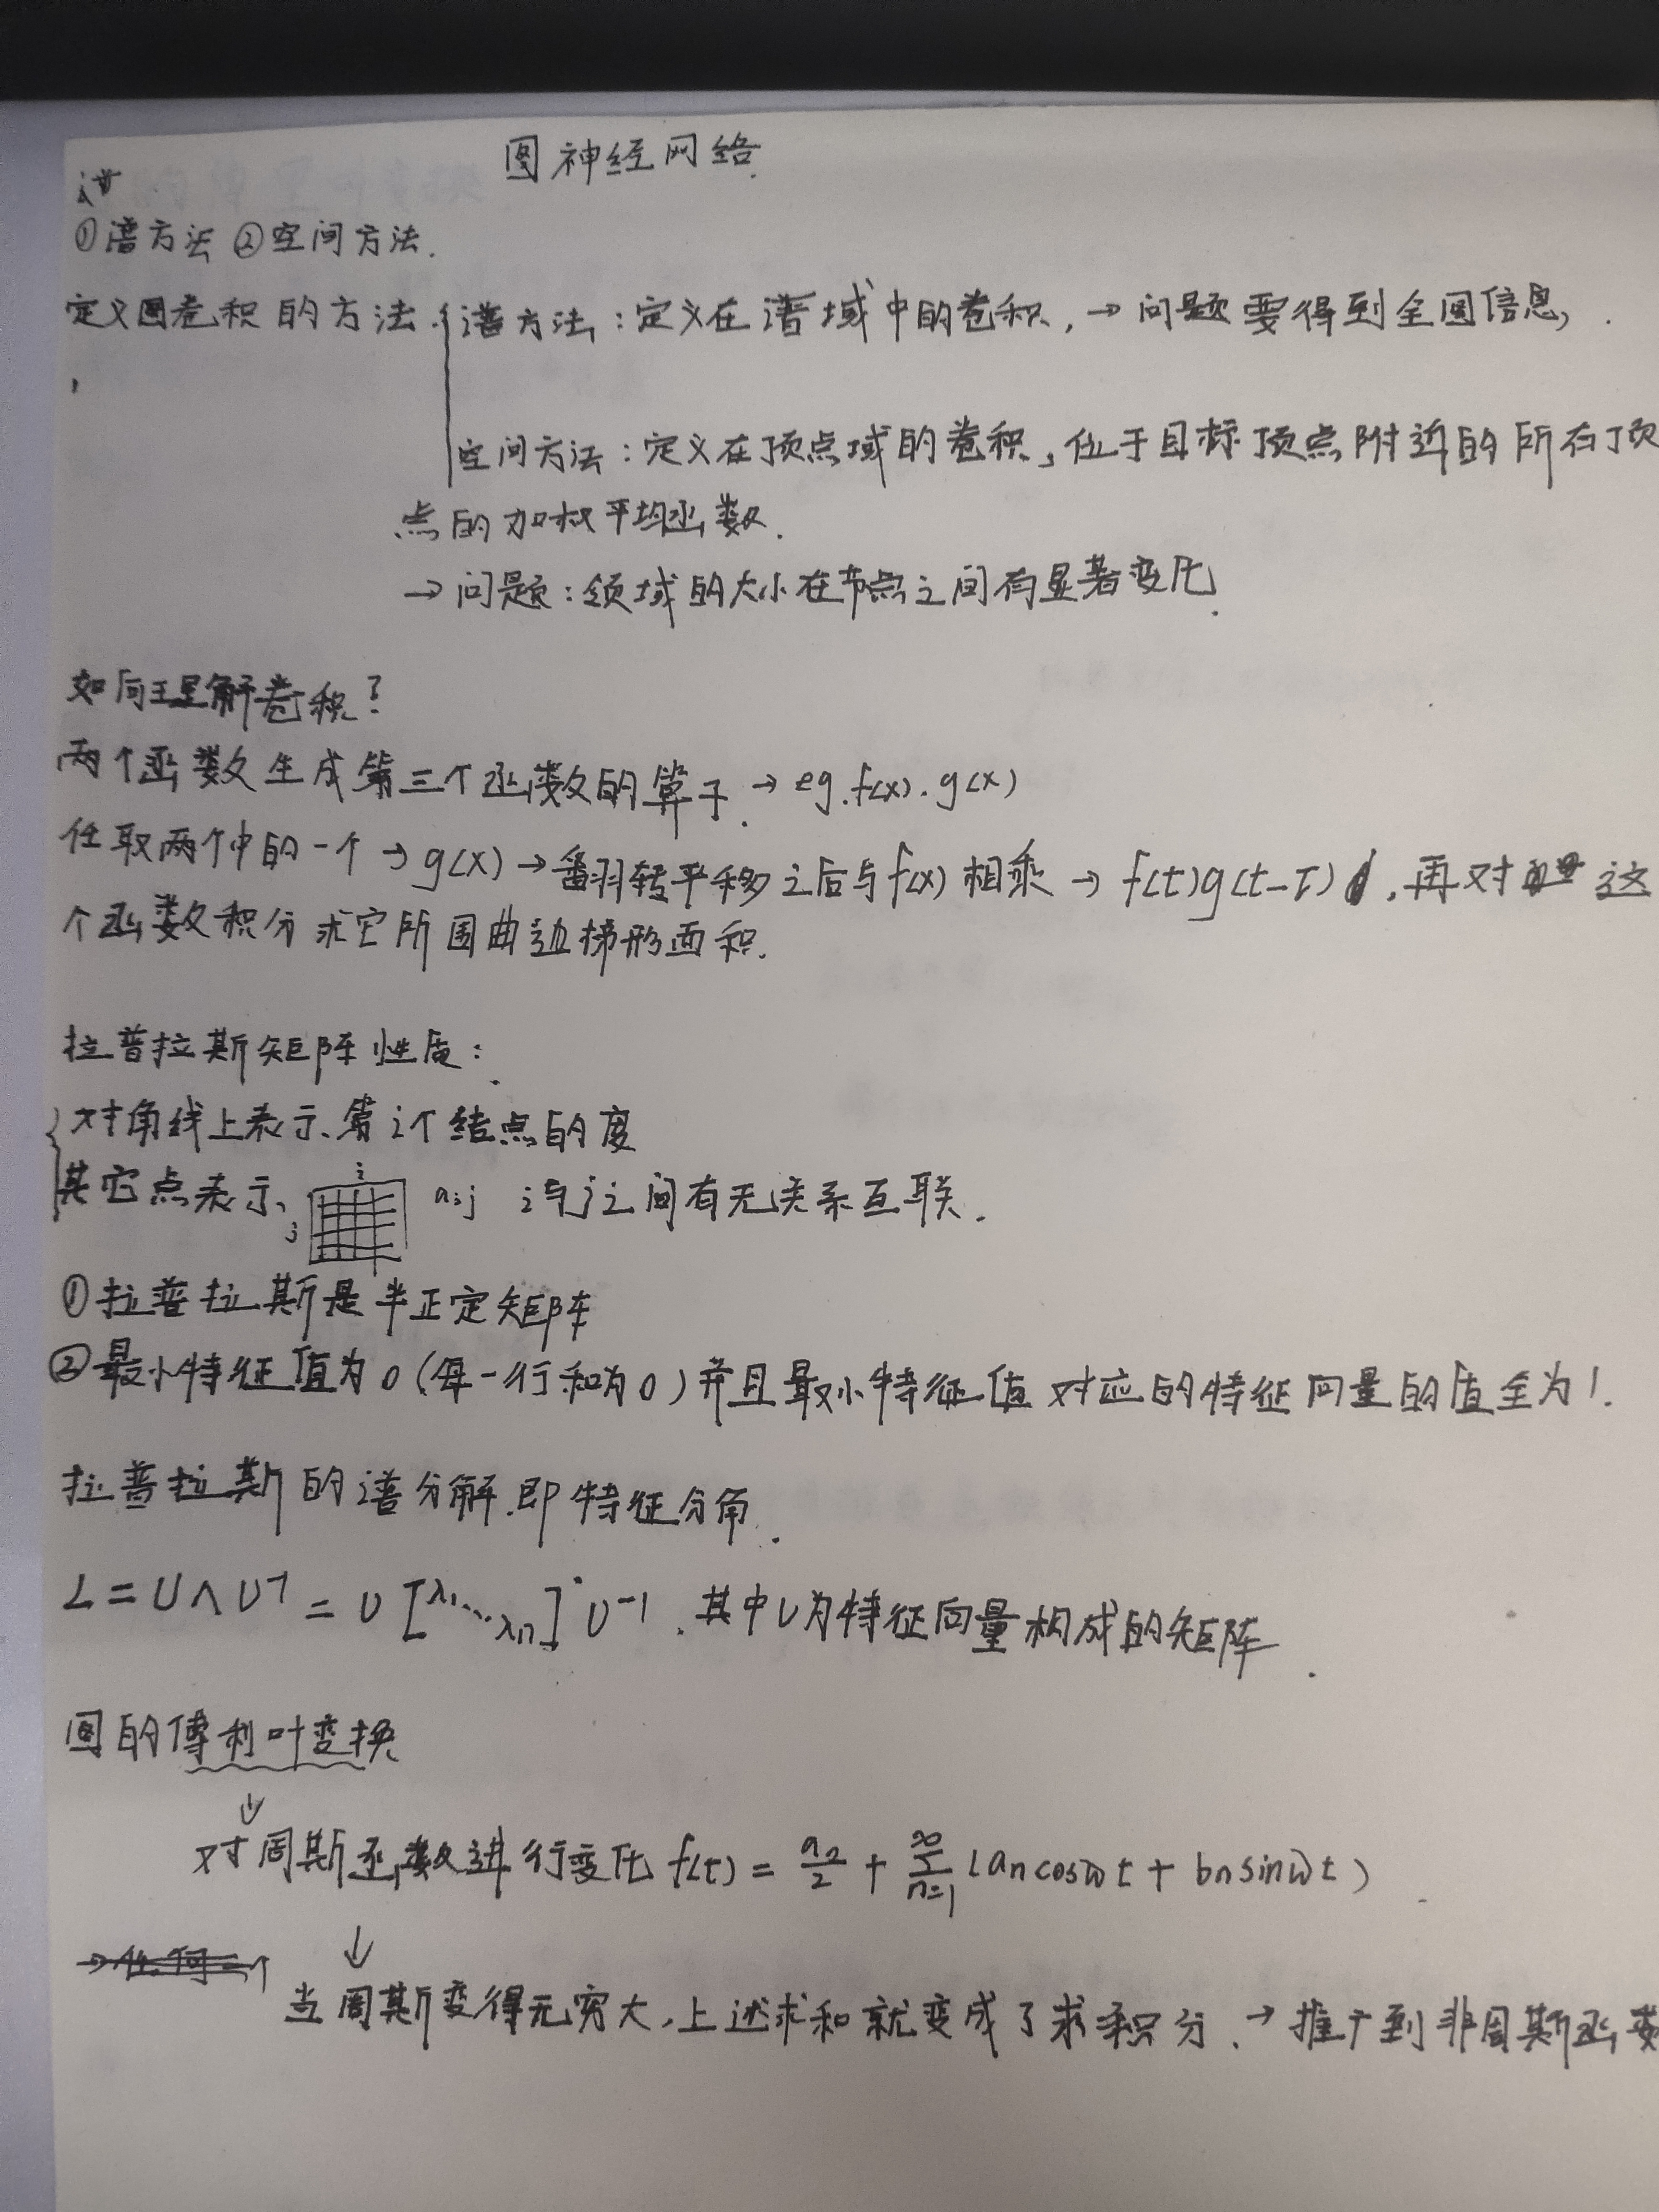 图神经网络.
①谱方法 ②空间方法.
定义图卷积的方法. 谱方法:定义在谱域中的卷积, → 问题要得到全图信息,
空间方法:定义在顶点域的卷积, 位于目标顶点附近的所有顶
点的加权平均函数.
→ 问题:领域的大小在节点之间有显著变化.
如何理解卷积?
两个函数生成第三个函数的算子. → eg. f(x). g(x)
任取两个中的一个 → g(x) → 翻转平移之后与f(x)相乘 → f(t)g(t-τ) , 再对 这
个函数积分求它所围曲边梯形面积.
拉普拉斯矩阵性质:
对角线上表示第i个结点的度
其它点表示 i j aij i与j之间有无关系互联.
①拉普拉斯是半正定矩阵
②最小特征值为0(每一行和为0)并且最小特征值对应的特征向量的值全为1.
拉普拉斯的谱分解.即特征分角.
L = U∧U⁻¹ = U [λ1⋱λn] U⁻¹. 其中U为特征向量构成的矩阵.
图的傅利叶变换
↓
对周斯函数进行变化 f(t) = a0/2 + ∞∑n=1 (an cosωt + bn sinωt)
→ 任何一个 ↓
当周斯变得无穷大, 上述求和就变成了求积分. → 推广到非周斯函数